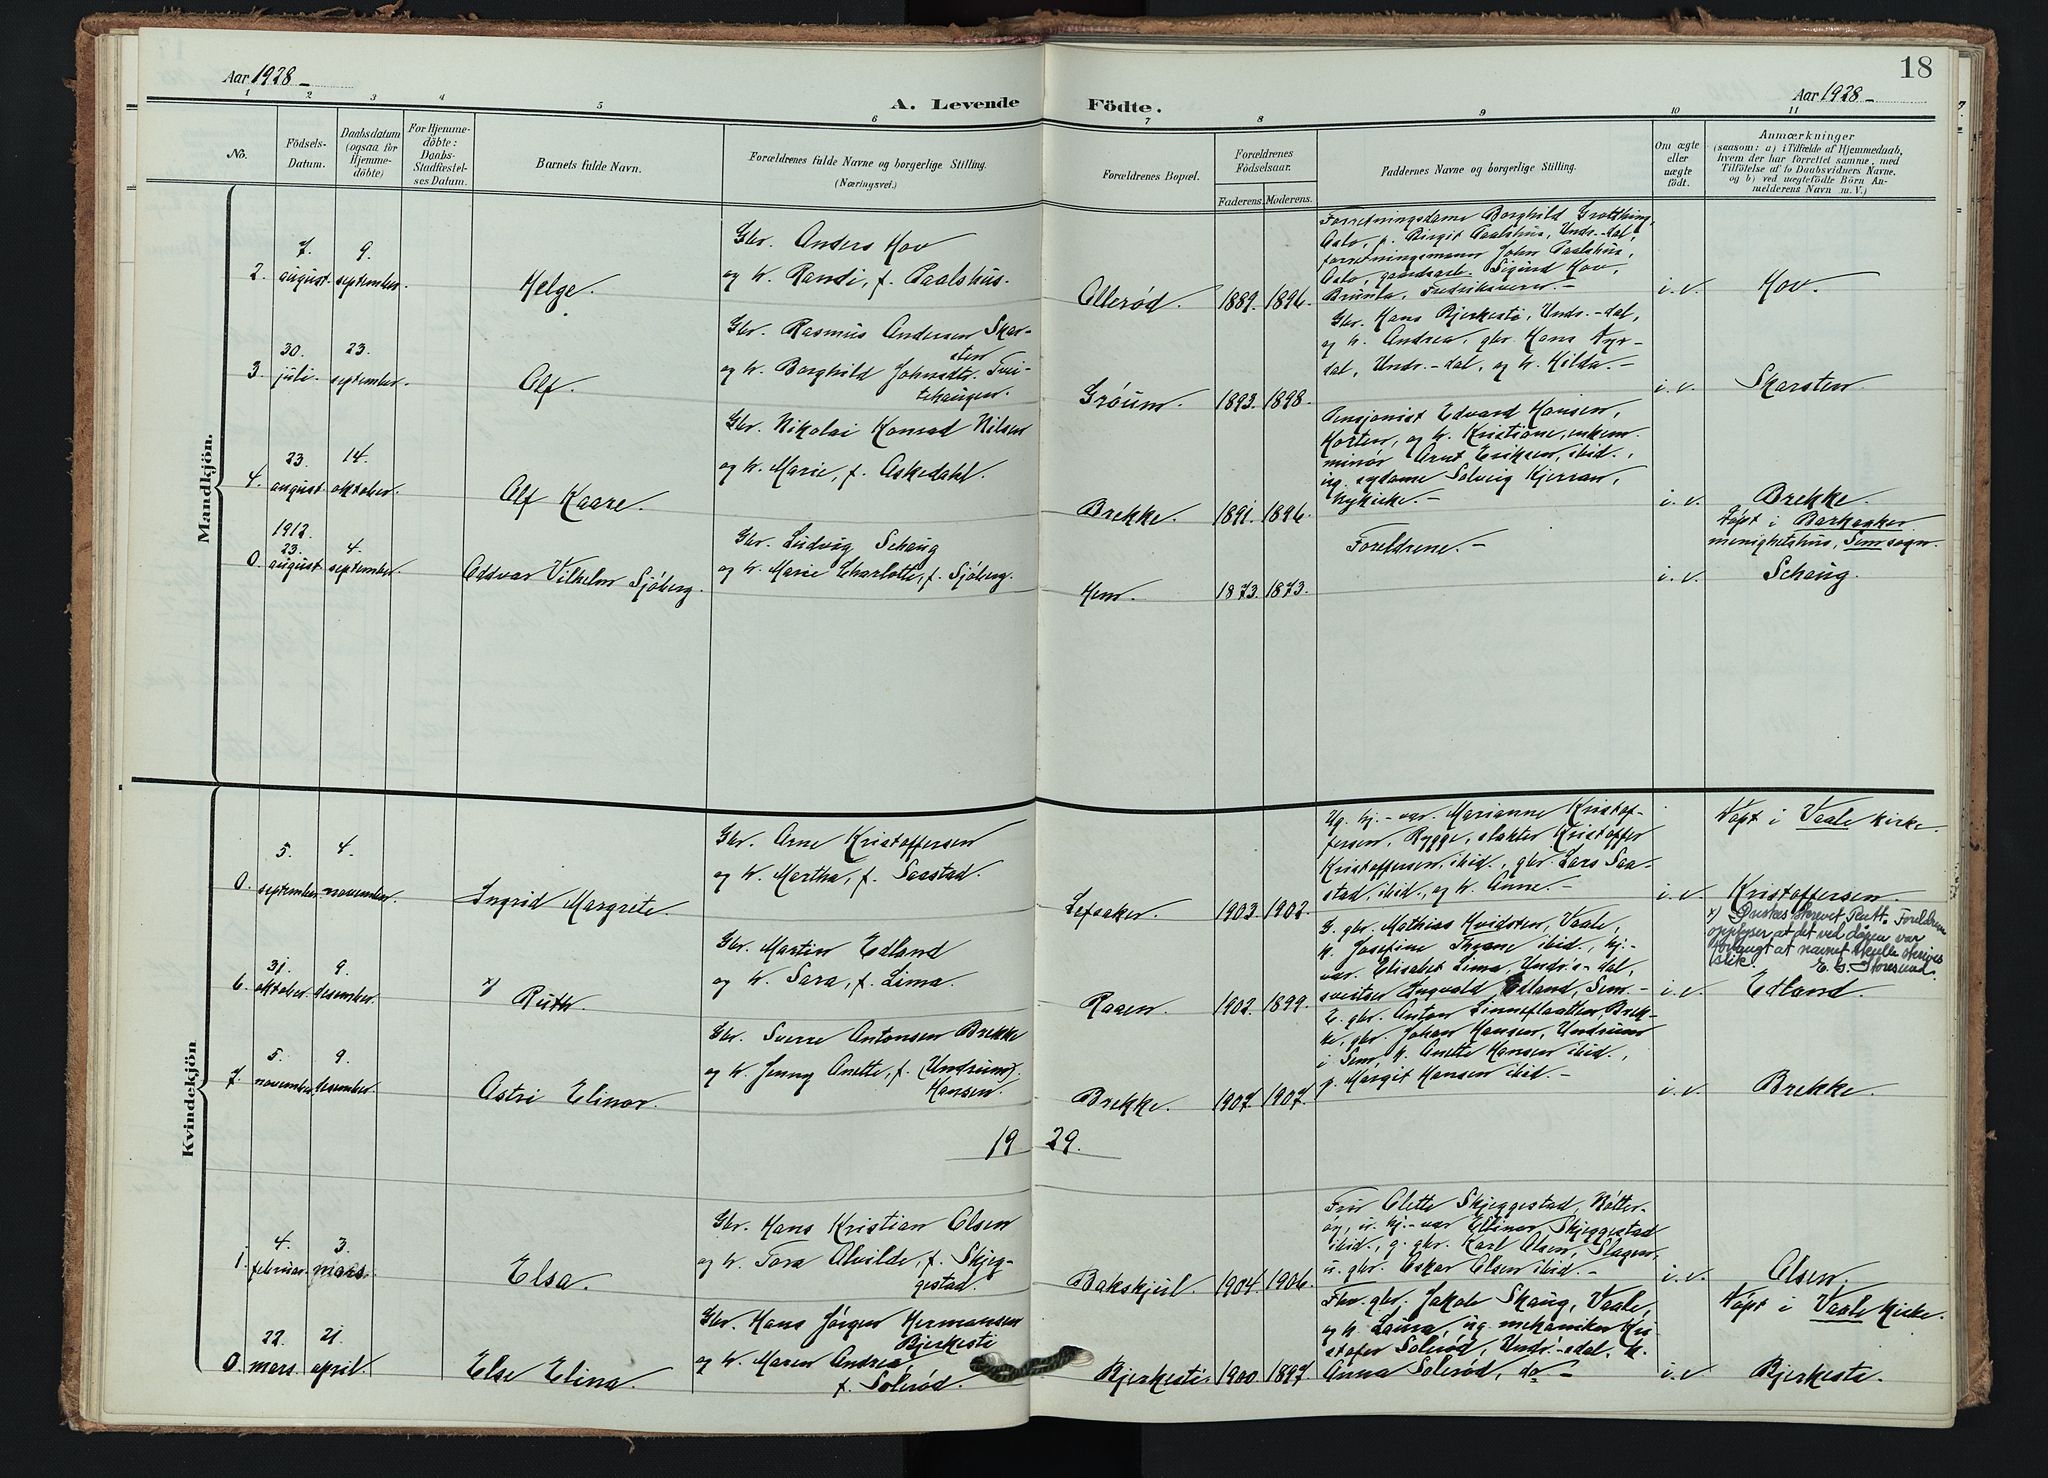 18
Aar 1928 -
Aar 1928 -
A. Levende
Födte.
1 2 3 4 5 6 7 8 9 10 11
No.
Födsels-
Datum.
Daabsdatum
(ogsaa for
Hjemme-
döbte)
For Hjemme-
döbte:
Daabs-
Stadfæstel-
ses Datum.
Barnets fulde Navn.
Forældrenes fulde Navne og borgerlige Stilling.
(Næringsvei.)
Forældrenes Bopæl.
Forældrenes
Födselsaar.
Faderens.
Moderens.
Faddernes Navne og borgerlige Stilling.
Om ægte
eller
uægte
födt.
Anmærkninger
(saasom: a) i Tilfælde af Hjemmedaab,
hvem der har forrettet samme, med
Tilföielse af to Daabsvidners Navne.
og b) ved uægtefödte Börn An-
melderens Navn m. V.)
Mandkjön.
2. 7. august. 9. september.
Helge.
Gbr. Anders Hov
og h. Randi, f. Paalshus.
Ollerød. 1889. 1896.
Forretningsdame Borghild
Oslo, p. Birgit Paalshus, Undr.-dal,
forretningsmann John Paalshus,
Oslo, gaardsarb. Sigurd Hov,
Brunla, Fredriksvern. -
i. e. Hov.
3. 30. juli. 23. september.
Alf.
Gbr. Rasmus Andersen Skar-
sten
og h. Borghild Johnsdtr.
Grøum. 1893. 1898.
Gbr. Hans Bjerkesti, Undr.-dal,
og h. Andrea, gbr. Hans Nyr-
dal, Undr.-dal, og h. Hilda. -
i. e. Skarsten.
4. 23. august. 14. oktober.
Alf Kaare.
Gbr. Nikolai Konrad Nilsen
og h. Marie, f. Askedahl.
Brekke. 1891. 1896.
Pensjonist Edvard Hansen,
Horten, og h. Kristiane, enkem.
minør Arnt Eriksen, ibid.,
ug. sydame Solveig Kjerran,
Nykirke. -
i. e. Brekke.
0. 1912. 23. august. 4. september.
Oddvar Vilhelm Sjöberg.
Gbr. Ludvig Schaug
og h. Marie Charlotte, f. Sjöberg.
Hem. 1873. 1873.
Foreldrene. -
i. e.
Döpt i Barkaaker
menighetshus, Sem sogn.
Schaug.
Kvindekjön
0. 5. september. 4. november.
Ingrid Margrete.
Gbr. Arne Kristoffersen
og h. Martha, f. Saastad.
Lefsaker. 1903. 1902.
Ug. hj.-var. Marianne Kristof-
fersen, Rygge, slakter Kristoffer
Kristoffersen ibid., gbr. Lars Saa-
stad, ibid., og h. Anne. -
i. e.
Döpt i Vaale kirke.
Kristoffersen.
6. 31. oktober. 9. desember.
x) Ruth.
Gbr. Martin Edland
og h. Sara, f. Lima.
Raaen. 1902. 1899.
G. gbr. Mathias Hvidsten, Vaale,
h. Josefine Thrane ibid., hj.-
var. Elisabet Lima, Undr's-dal,
sveitser Ingvald Edland, Sem. -
i. e.
x) Ønskes skrevet Rutt. Foreldrene
opplyser at det ved dåpen var
forlangt at navnet skulle skrives
slik. E. G. Storesund.
Edland.
7. 5. november. 9. desember.
Astri Elinor.
Gbr. Sverre Antonsen Brekke
og h. Jenny Anette, f. (Undrum).
Hansen.
Brekke. 1907. 1907.
E. gbr. Anton Linneflaatten Brek-
ke, gbr. Johan Hansen, Undrum
i Sem, h. Anette Hansen ibid.,
p. Margit Hansen ibid. -
i. e. Brekke.
19 29.
1. 4. februar. 3. mars.
Elsa.
Gbr. Hans Kristian Olsen
og h. Tora Alvilde, f. Skjeg-
gestad.
Bakskjul. 1904. 1906.
Fru Olette Skjeggestad, Nötter-
öy, u. hj.-var Ellinor Skjeggestad
ibid., g. gbr. Karl Olsen, Slagen,
u. gbr. Oskar Olsen ibid. -
i. e. Olsen.
0. 22. mars. 21. april.
Else Elina.
Gbr. Hans Jørgen Hermansen
Bjerkesti
og h. Maren Andrea,
f. Solerød.
Bjerkesti. 1900. 1897.
Fhv. gbr. Jakob Skaug, Vaale,
og h. Laura, ug. mekaniker Kri-
stofer Solerød, Undr.-dal, h.
Anna Solerød, do -
i. e
Döpt i Vaale kirke.
Bjerkesti.